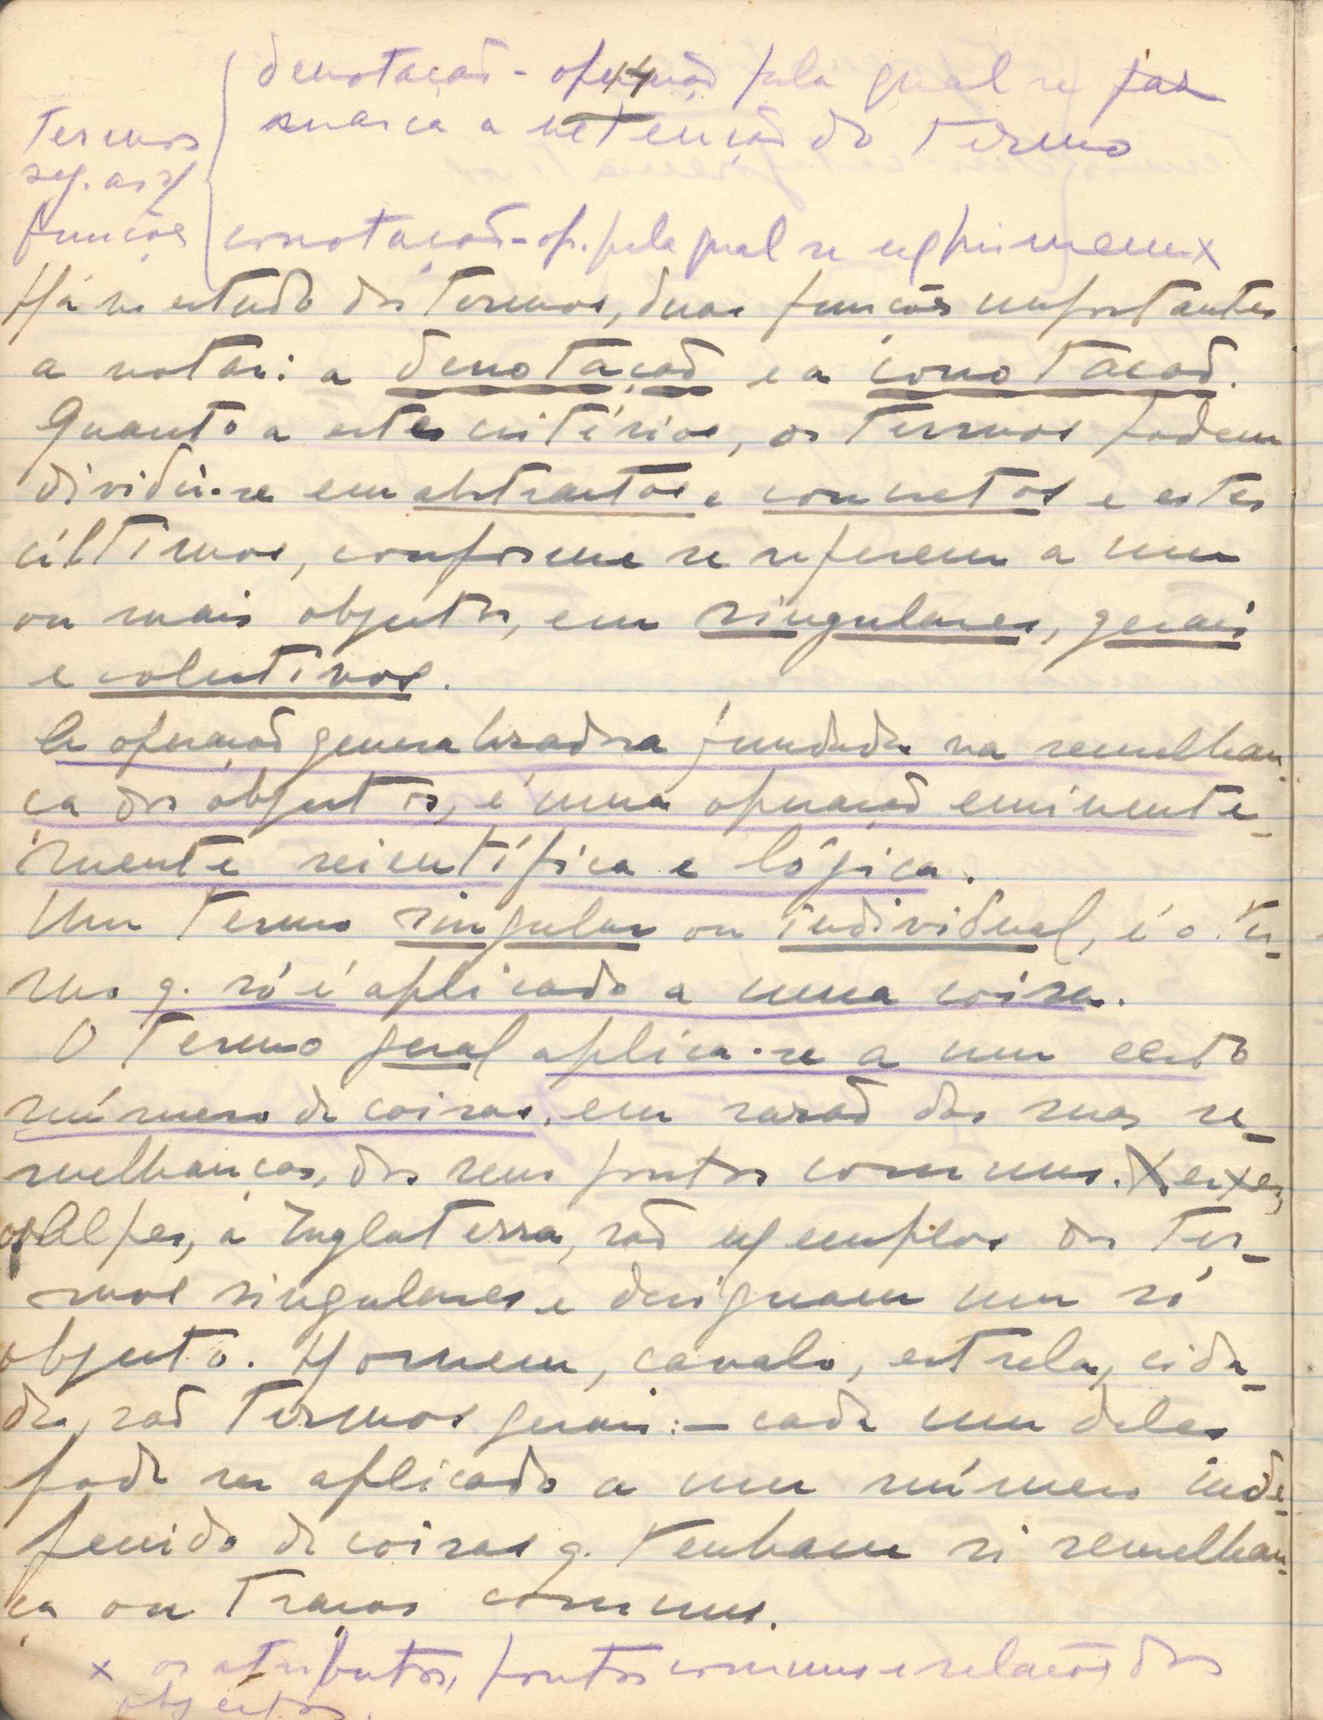 denotação - operação pela qual se
44
marca a retenção do termo
Termos
seg. as
funções
conotação - op. pela qual se exprimem x
Há no estudo dos termos, duas funções importantes
a notar: a denotação e a conotação.
Quanto a estes critérios, os termos podem
dividir-se em abstractos e concretos e estes
últimos, conforme se referem a um
ou mais objectos, em singulares, gerais
e colectivos.
A operação generalizadora fundada na semelhan-
ça dos objectos, é uma operação eminente-
mente scientífica e lógica.
Um termo singular ou individual, é o ter-
mo q. só é aplicado a uma coisa.
O termo geral aplica-se a um certo
número de coisas, em razão das suas se-
melhanças, dos seus pontos comuns. Xerxes,
os Alpes, a Inglaterra, são exemplos de ter-
mos singulares e designam um só
objecto. Homem, cavalo, estrela, cida-
de, são termos gerais: — cada um deles
pode ser aplicado a um número inde-
fenido de coisas q. tenham si semelhan-
ça ou traços comuns.
x os atributos, pontos comuns e relações dos
objectos.